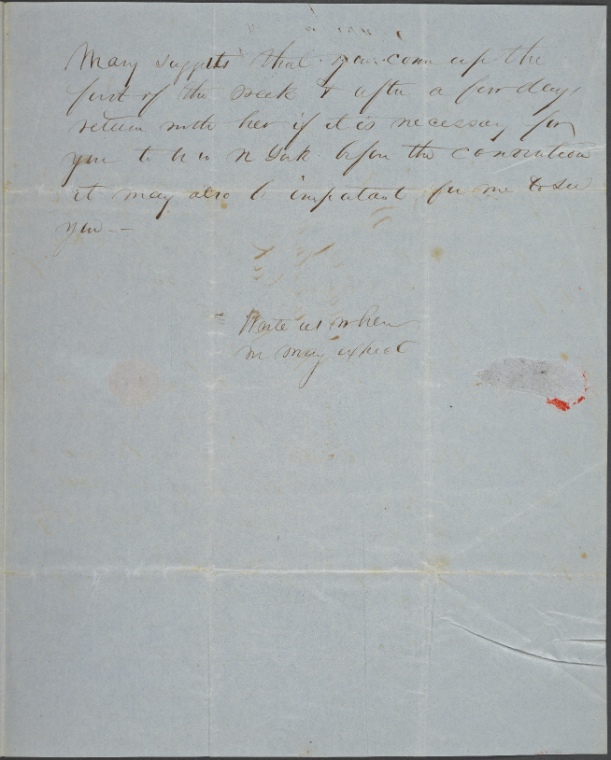 Mary suggests that you come up the
first of the week & after a few days
return with her if it is necessary for
you to be in N York before the convention
it may also be important for me to see
you —
Write us when
we may expect